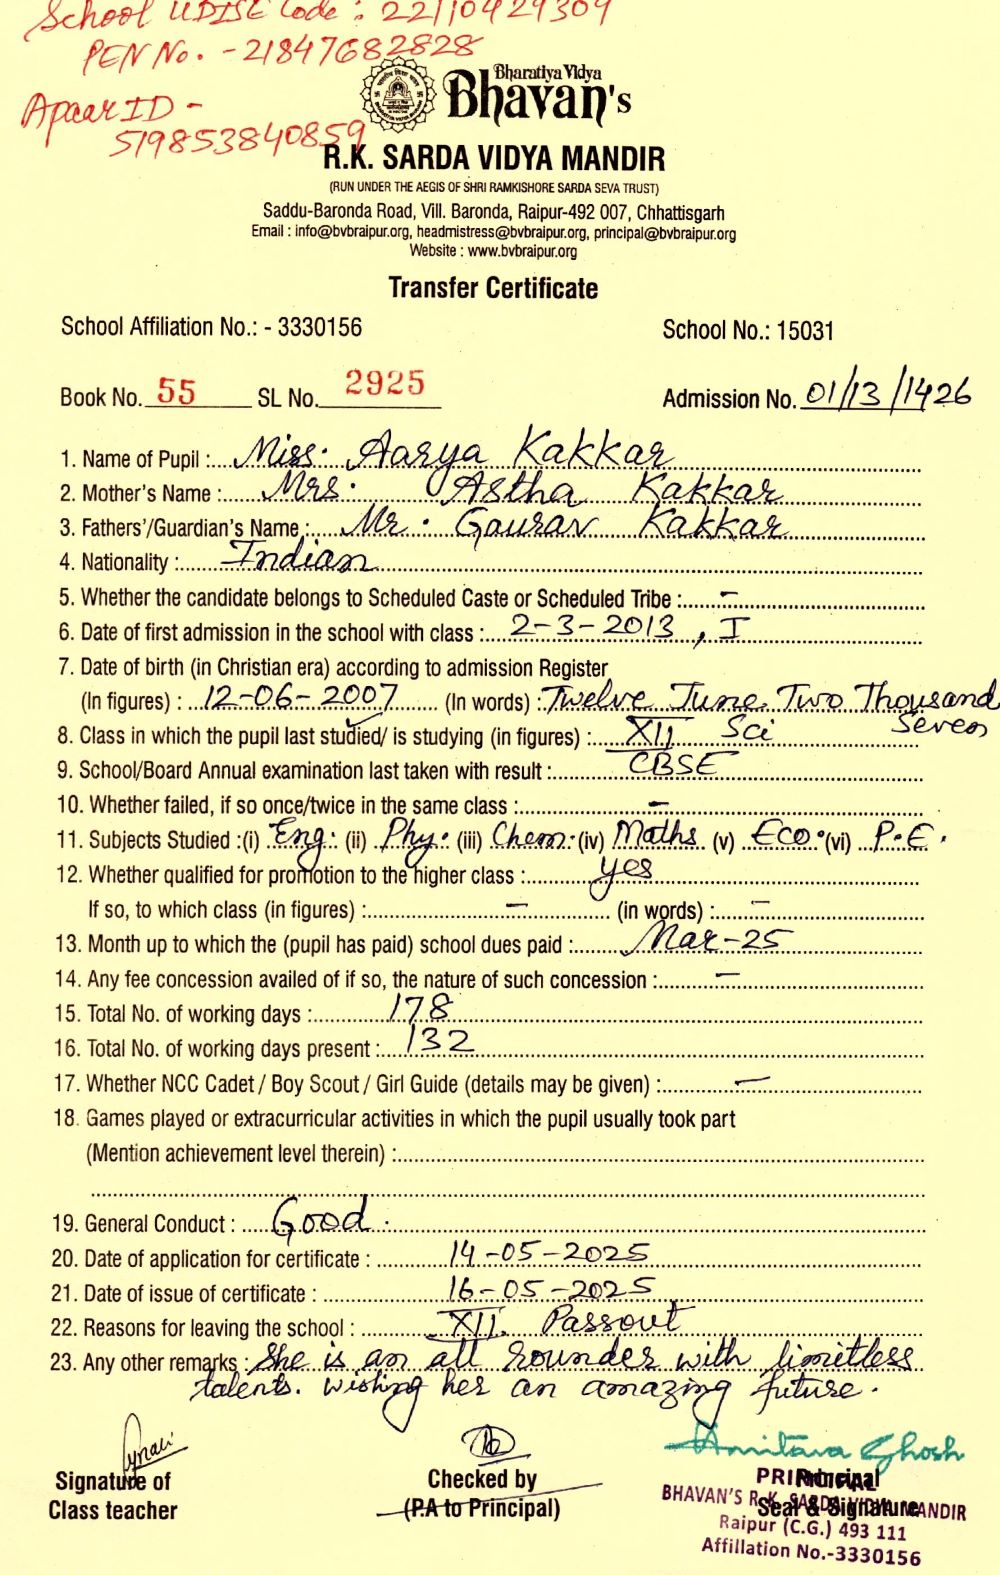 School UDISE Code : 22110429309
PEN No. - 21847682828
Apaar ID -
519853840859
Bharatiya Vidya
Bhavan's
R.K. SARDA VIDYA MANDIR
(RUN UNDER THE AEGIS OF SHRI RAMKISHORE SARDA SEVA TRUST)
Saddu-Baronda Road, Vill. Baronda, Raipur-492 007, Chhattisgarh
Email : info@bvbraipur.org, headmistress@bvbraipur.org, principal@bvbraipur.org
Website : www.bvbraipur.org
Transfer Certificate
School Affiliation No.: - 3330156 School No.: 15031
Book No. 55 SL No. 2925 Admission No. 01/13/1426
1. Name of Pupil : Miss. Aarya Kakkar
2. Mother's Name : Mrs. Astha Kakkar
3. Fathers'/Guardian's Name : Mr. Gaurav Kakkar
4. Nationality : Indian
5. Whether the candidate belongs to Scheduled Caste or Scheduled Tribe : -
6. Date of first admission in the school with class : 2-3-2013, I
7. Date of birth (in Christian era) according to admission Register
(In figures) : 12-06-2007 (In words) : Twelve June Two Thousand
Seven
8. Class in which the pupil last studied/ is studying (in figures) : XII Sci
9. School/Board Annual examination last taken with result : CBSE
10. Whether failed, if so once/twice in the same class : -
11. Subjects Studied :(i) Eng. (ii) Phy. (iii) Chem. (iv) Maths (v) Eco. (vi) P.E.
12. Whether qualified for promotion to the higher class : yes
If so, to which class (in figures) : - (in words) : -
13. Month up to which the (pupil has paid) school dues paid : Mar-25
14. Any fee concession availed of if so, the nature of such concession : -
15. Total No. of working days : 178
16. Total No. of working days present : 132
17. Whether NCC Cadet / Boy Scout / Girl Guide (details may be given) : -
18. Games played or extracurricular activities in which the pupil usually took part
(Mention achievement level therein) :
19. General Conduct : Good.
20. Date of application for certificate : 14-05-2025
21. Date of issue of certificate : 16-05-2025
22. Reasons for leaving the school : XII. Passout
23. Any other remarks : She is an all rounder with limitless
talents. wishing her an amazing future.
Amitava Ghosh
Signature of Checked by Principal
Class teacher (P.A to Principal) Seal & Signature
PRINCIPAL
BHAVAN'S R.K. SARDA VIDYA MANDIR
Raipur (C.G.) 493 111
Affillation No.-3330156